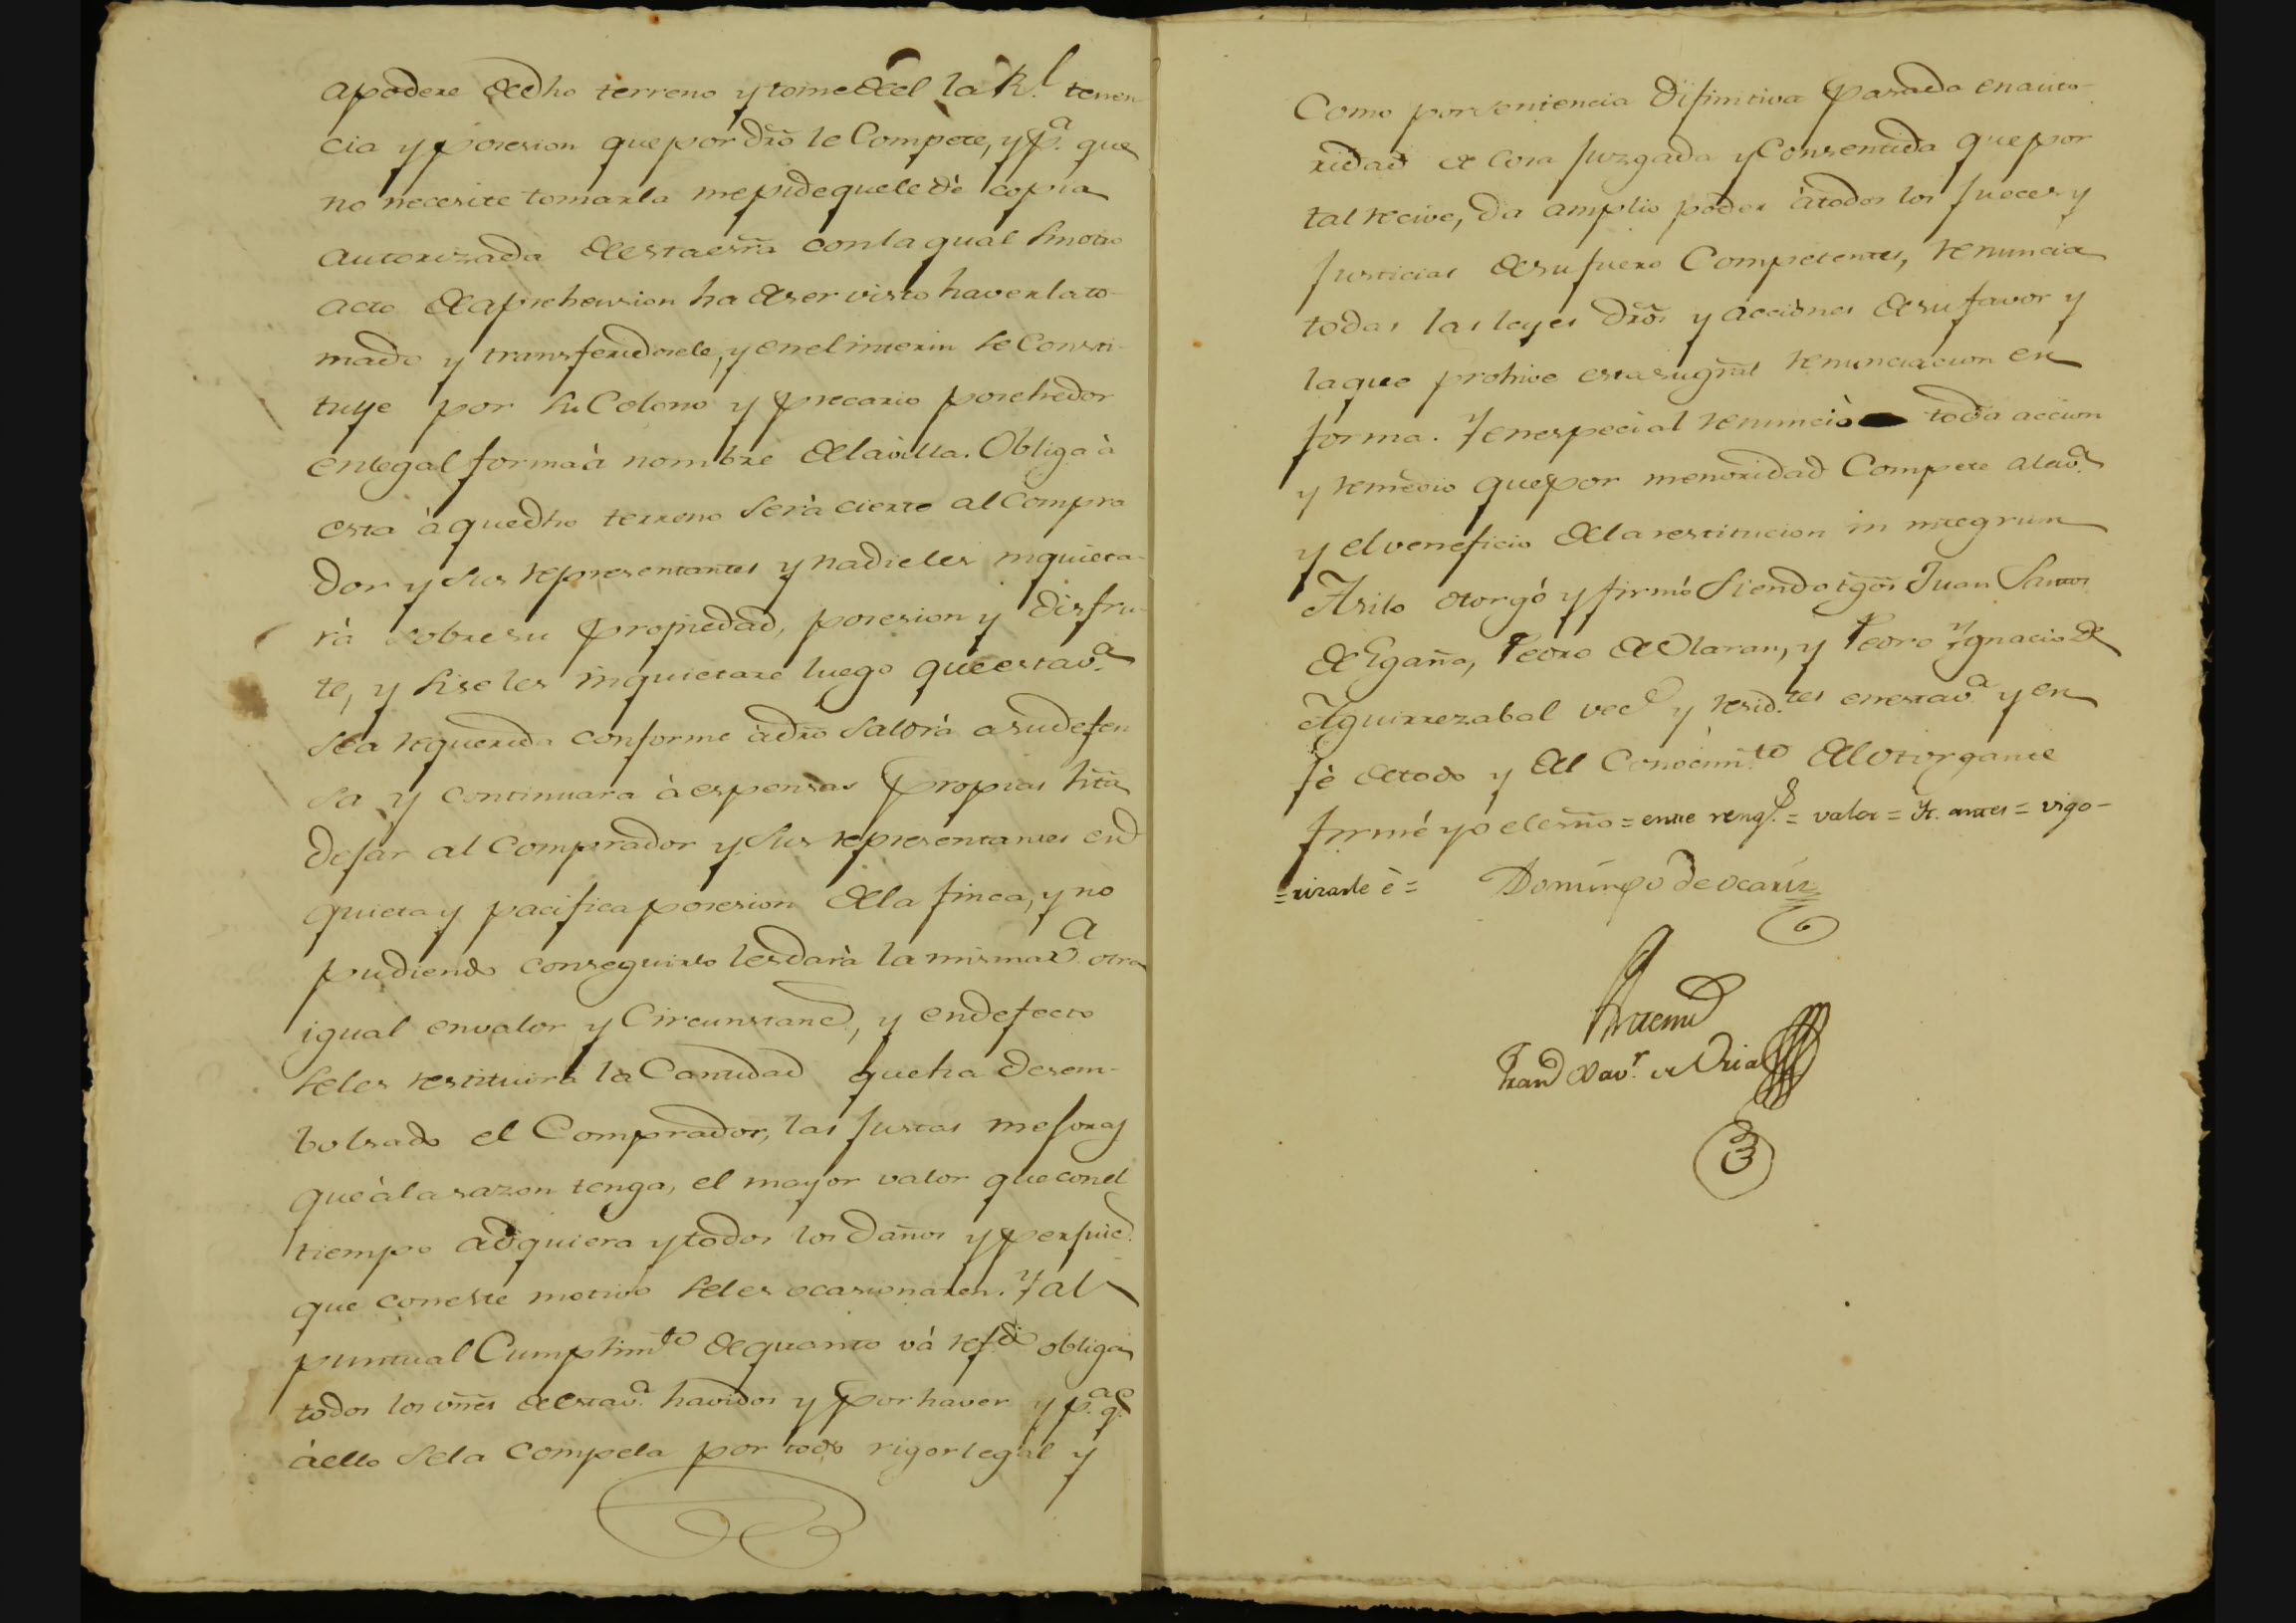 apodere de dho terreno y tome de el la Rl. tenen
cia y posesion que por dro le Compete, y pa. que
no necesite tomarla me pide que le dè copia
autorizada de esta esra con la qual sin otro
acto de aprehension ha de ser visto haverla to-
mado y transferidosele, y en el interin se Consti-
tuye por su Colono y precario posehedor
en legal forma à nombre de la villa. Obliga à
esta à que dho terreno serà cierto al Compra
dor y sus representantes y nadie les inquieta-
rà sobre su propiedad, posesion y disfru-
te, y si se les inquietare luego que esta va.
sea requerida conforme à dro saldrà a su defen
sa y continuara à espensas propias hta
dejar al Comprador y sus representantes en
quieta y pacifica posesion de la finca, y no
pudiendo conseguirlo les darà la misma va. otra
igual en valor y Circunstanc, y en defecto
se les restituirà la Cantidad que ha desem-
bolsado el Comprador, las justas mejoras
que à la sazon tenga, el mayor valor que con el
tiempo adquiera y todos los daños y perjuic.
que con este motivo se les ocasionaren. Y al
puntual Cumplimto de quanto và refdo obliga
todos los vnes de esta va. havidos y por haver y pa. qe.
à ello se la Compela por todo rigor legal y
Como por sentencia difinitiva pasada en auto-
ridad de Cosa Juzgada y Consentida que por
tal recive, da amplio poder à todos los Jueces y
Justicias de su fuero Competentes, renuncia
todas las leyes dros y acciones de su favor y
la que prohive esta su gral renunciacion en
forma. Y en especial renunciò toda accion
y remedio que por menoridad Compete a la va.
y el veneficio de la restitucion in integrum
Asi lo otorgó y firmó siendo tgos Juan Santos
de Egaña, Pedro de Olaran, y Pedro Ygnacio de
Aguirrezabal vec y residtes en esta va y en
fè de todo y del Conocimto del otorgante
firmé yo el esno = entre rengs. = valor = Yt. antes = vigo-
= rizarle è = Domingo de ocariz
Antemi
Franco Xavr. de Oria